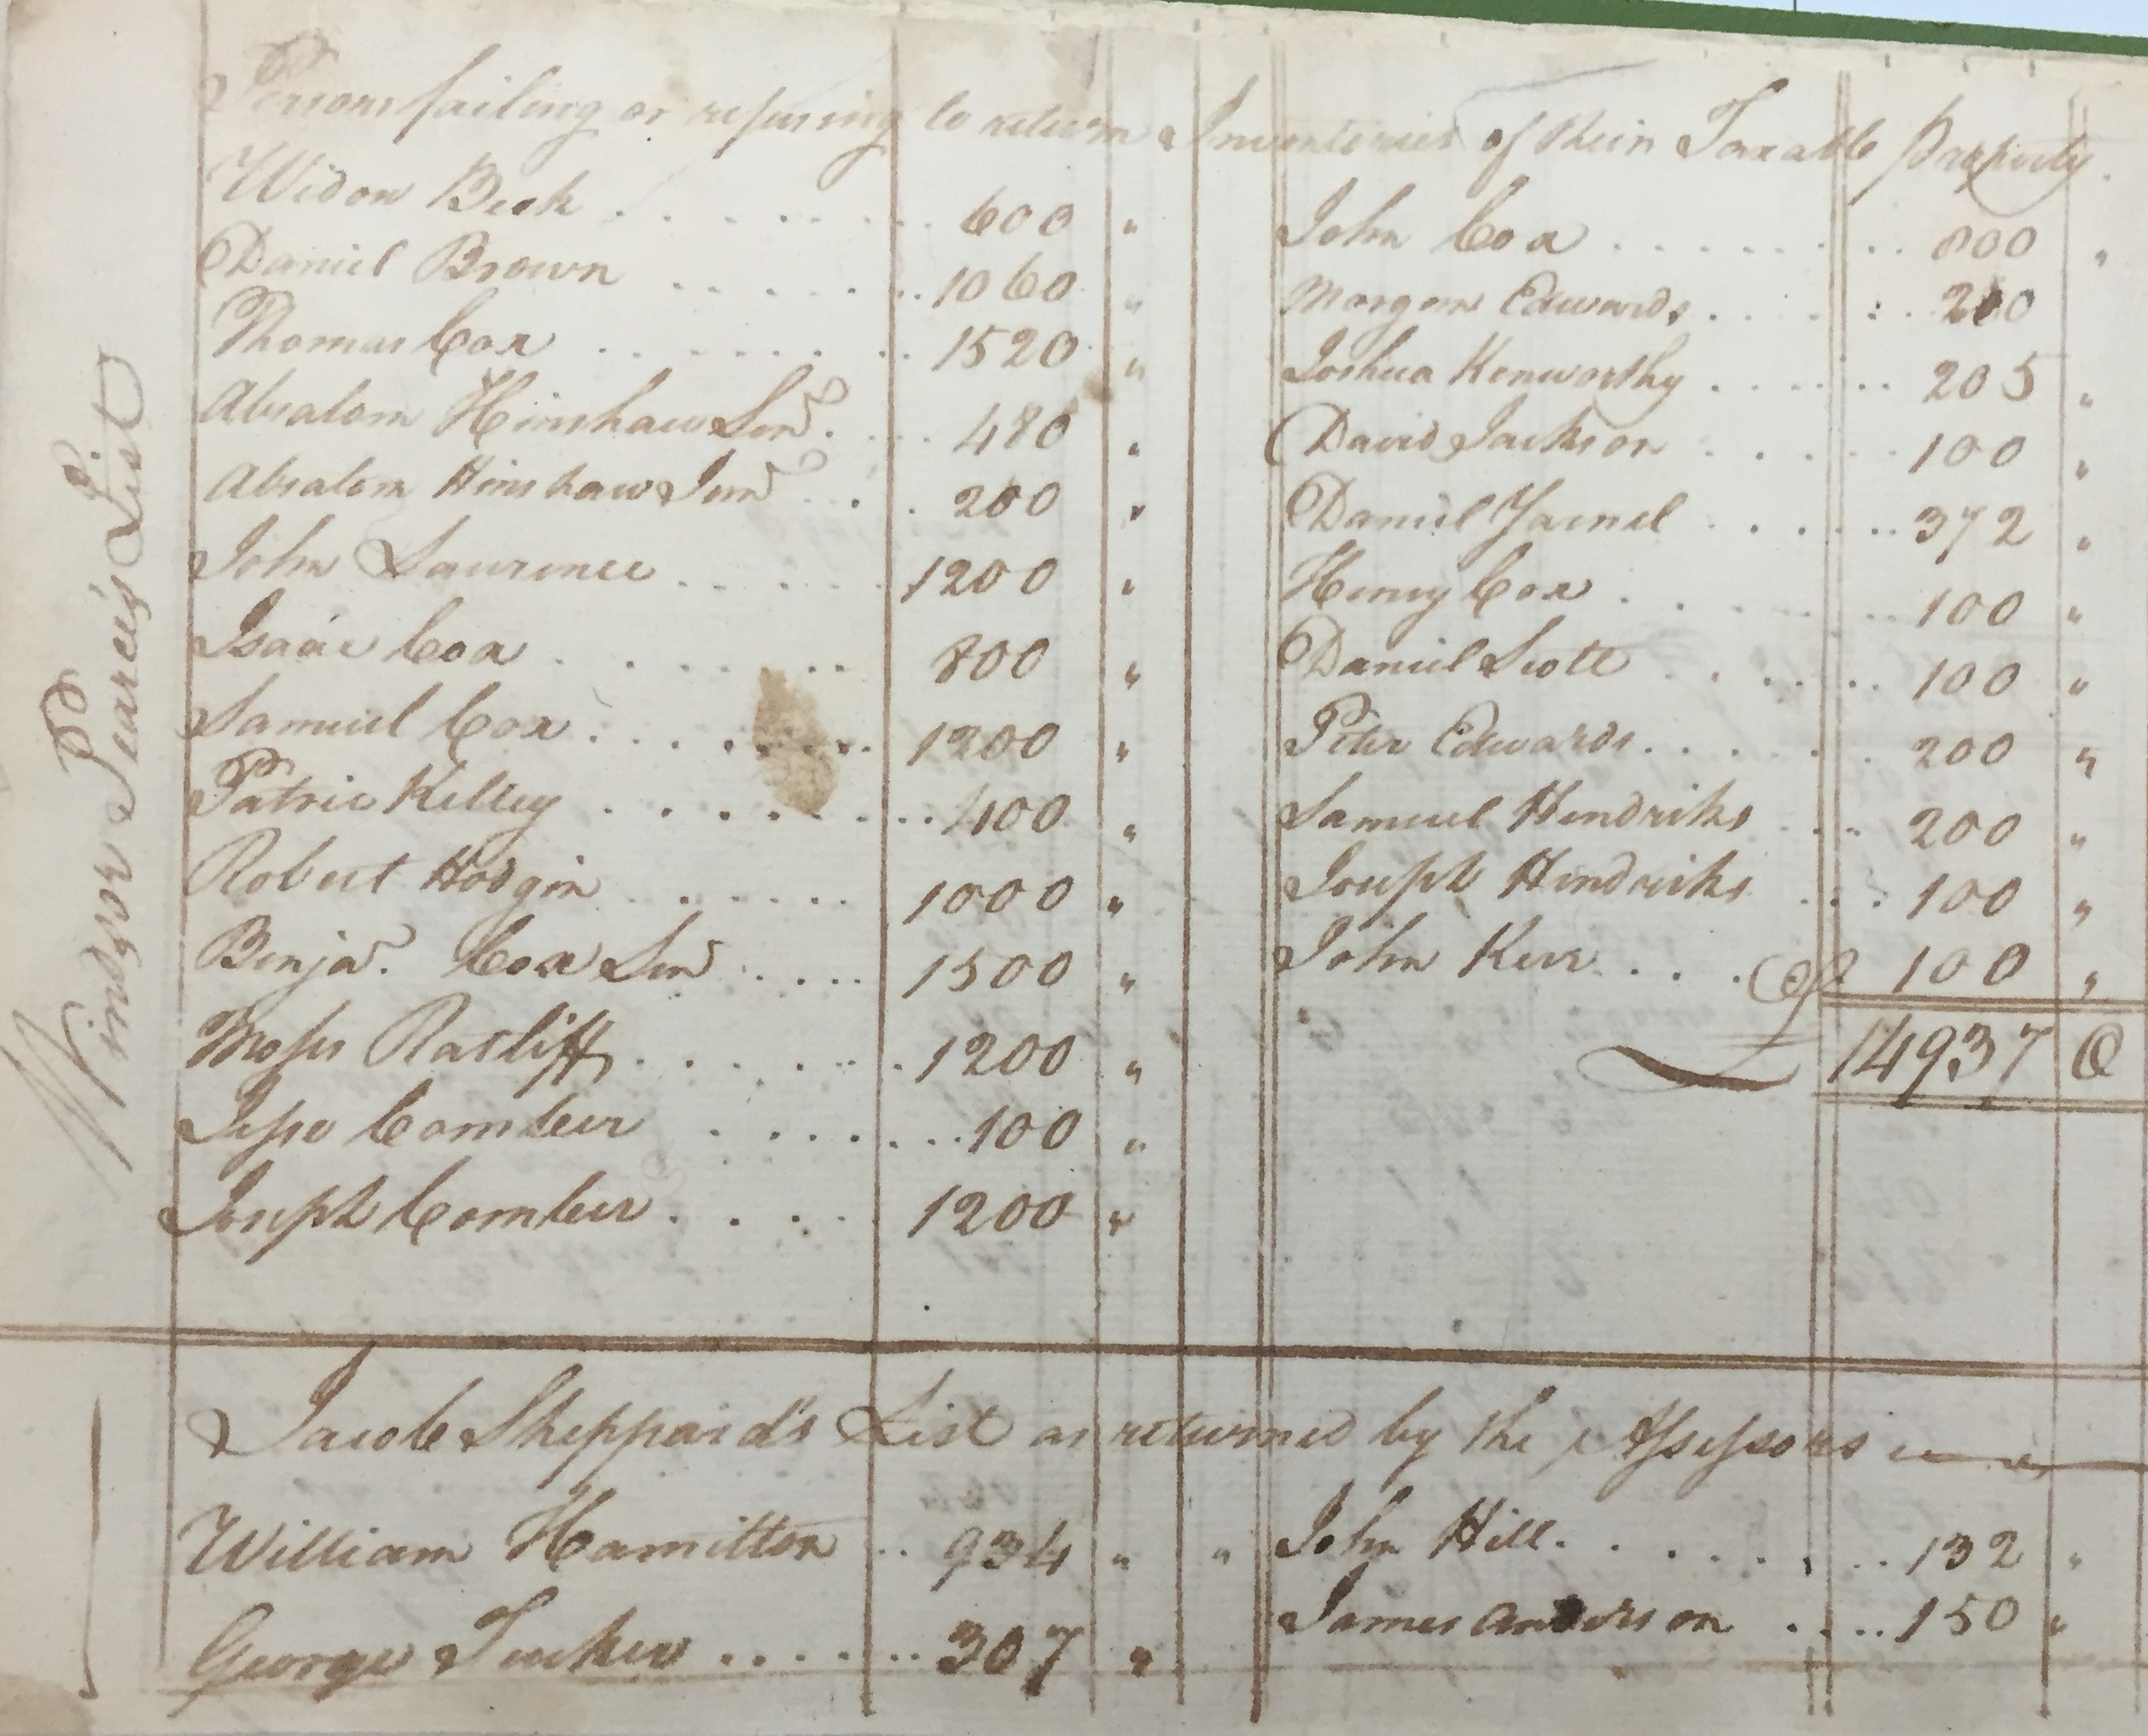 Persons failing or refusing to return Inventories of their Taxable Property.
Windsor Pearces List
Widow Beck . . . . . . . . 600 "
Daniel Brown . . . . . . . 1060 "
Thomas Cox . . . . . . . . 1520 "
Absalom Hinshaw Senr. . . . 480 "
Absalom Hinshaw Junr . . . 200 "
John Laurence . . . . . 1200 "
Isaac Cox . . . . . . . 800 "
Samuel Cox . . . . . . . . 1200 "
Patric Kelley . . . . . . . . 400 "
Robert Hodgin . . . . . . 1000 "
Benja. Cox Senr . . . . 1500 "
Moses Ratliff . . . . . . . 1200 "
Jesse Comber . . . . . . . . 100 "
Joseph Comber . . . . 1200 "
John Cox . . . . . . . . 800 "
Morgan Edwards . . . . . . 200
Joshua Kenworthy . . . . . . 205 "
David Jackson . . . . . 100 "
Daniel Yarnel . . . . . . 372 "
Henry Cox . . . . . . . . 100 "
Daniel Scott . . . . . . 100 "
Peter Edwards . . . . . . 200 "
Samuel Hendriks . . . 200 "
Joseph Hendriks . . . 100 "
John Kerr . . . . 100 "
14937 0
Jacob Sheppard's List as returned by the Assessors
William Hamilton . . 934 " "
George Tucker . . . . . . . . 307 "
John Hill . . . . . . . . 132 "
James Anderson . . . . . 150 "